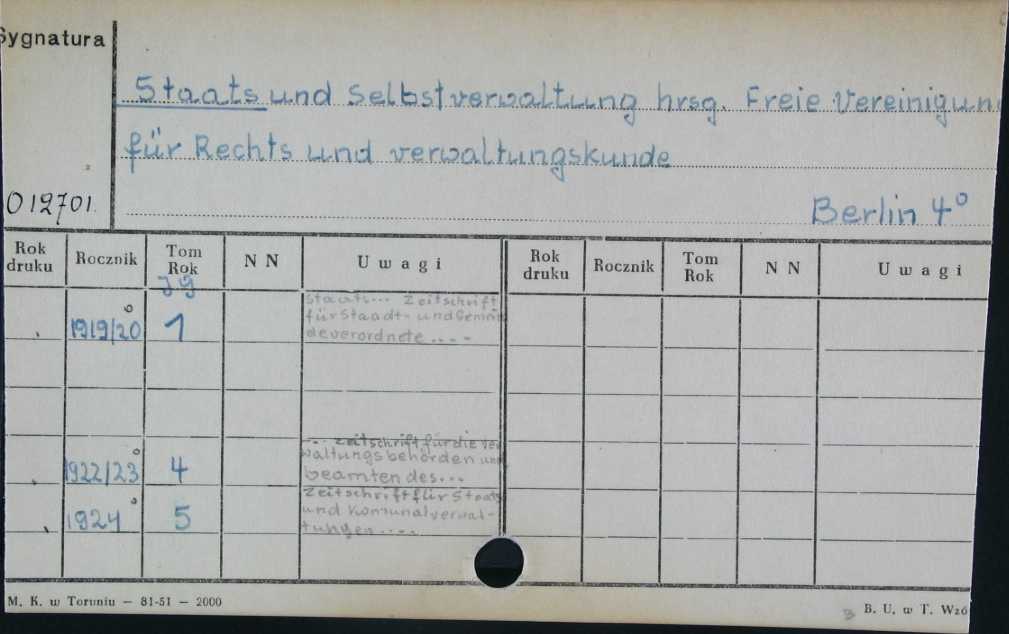 Sygnatura
Staats und Selbstverwaltung hrsg. Freie Vereinigun
für Rechts und verwaltungskunde
012701.
Berlin 4°
Rok druku Rocznik Tom Rok N N Uwagi Rok druku Rocznik Tom Rok N N Uwagi
Jg
1919/20 1 Staats... Zeitschrift
für Staadt- und Gemein
deverordnete....
1922/23 4 ... Zeitschrift für die ver
waltungsbehörden und
beamten des...
1924 5 Zeitschrift für Staats
und Komunalverwal-
tungen....
M. K. w Toruniu — 81-51 — 2000
B. U. w T. W26